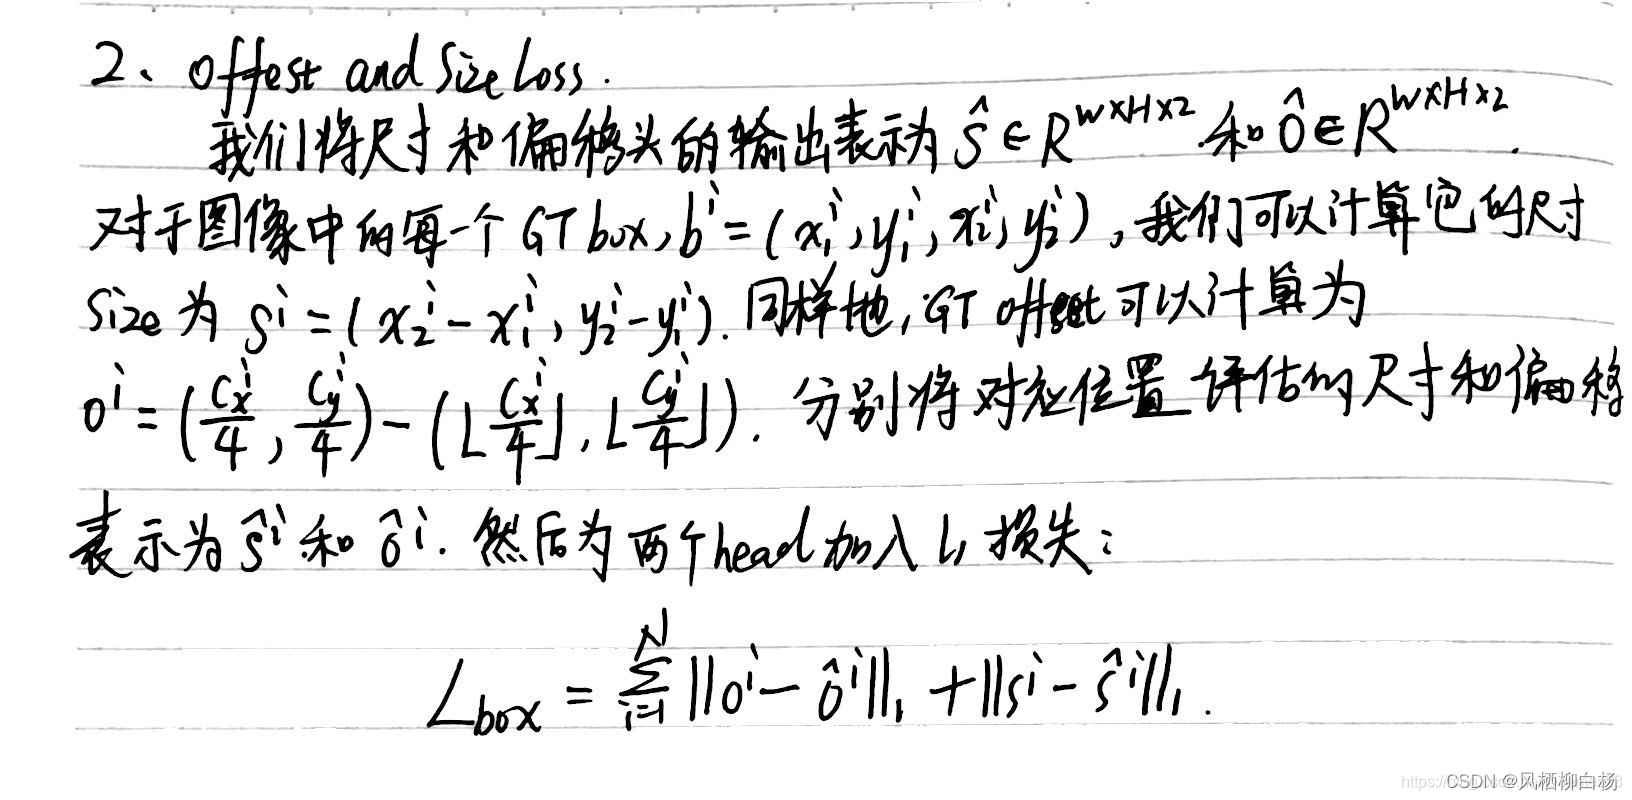 2、offest and Size Loss.
我们将尺寸和偏移头的输出表示为 ŝ∈R^{W×H×2} 和 ô∈R^{W×H×2}.
对于图像中的每一个 GT box, b^i=(x_1^i, y_1^i, x_2^i, y_2^i), 我们可以计算它的尺寸
Size 为 s^i=(x_2^i-x_1^i, y_2^i-y_1^i). 同样地, GT offset 可以计算为
o^i=(c_x^i/4, c_y^i/4)-(⌊c_x^i/4⌋, ⌊c_y^i/4⌋). 分别将对应位置评估的尺寸和偏移
表示为 ŝ^i 和 ô^i. 然后为两个head加入 l_1 损失:
L_{box} = \sum_{i=1}^{N} ||o^i-ô^i||_1 + ||s^i-ŝ^i||_1.
CSDN @风栖柳白杨